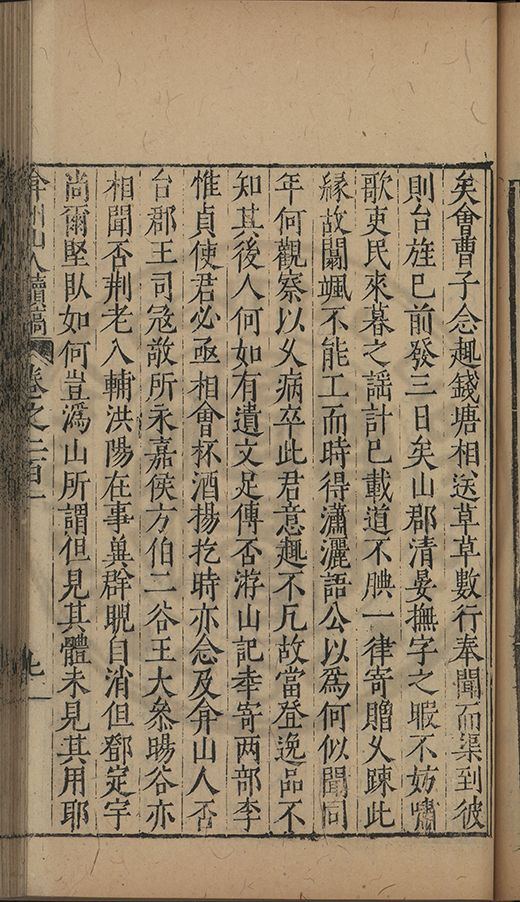 矣會曹子念趣錢塘相送草草數行奉聞而渠到彼
則台旌已前發三日矣山郡清晏撫字之暇不妨嘯
歌吏民來暮之謡計已載道不腆一律寄贈乆踈此
緣故闒颯不能工而時得瀟灑語公以爲何似聞同
年何觀察以乆病卒此君意趣不凢故當登逸品不
知其後人何如有遺文足傳否游山記奉寄两部李
惟貞使君必亟相會杯酒揚扢時亦念及弇山人否
台郡王司冦敬所永嘉侯方伯二谷王大叅暘谷亦
相聞否荆老入輔洪陽在事兾群聣自消但鄧定宇
尚爾堅臥如何豈潙山所謂但見其體未見其用耶
弇州山人續稿 卷之二百一